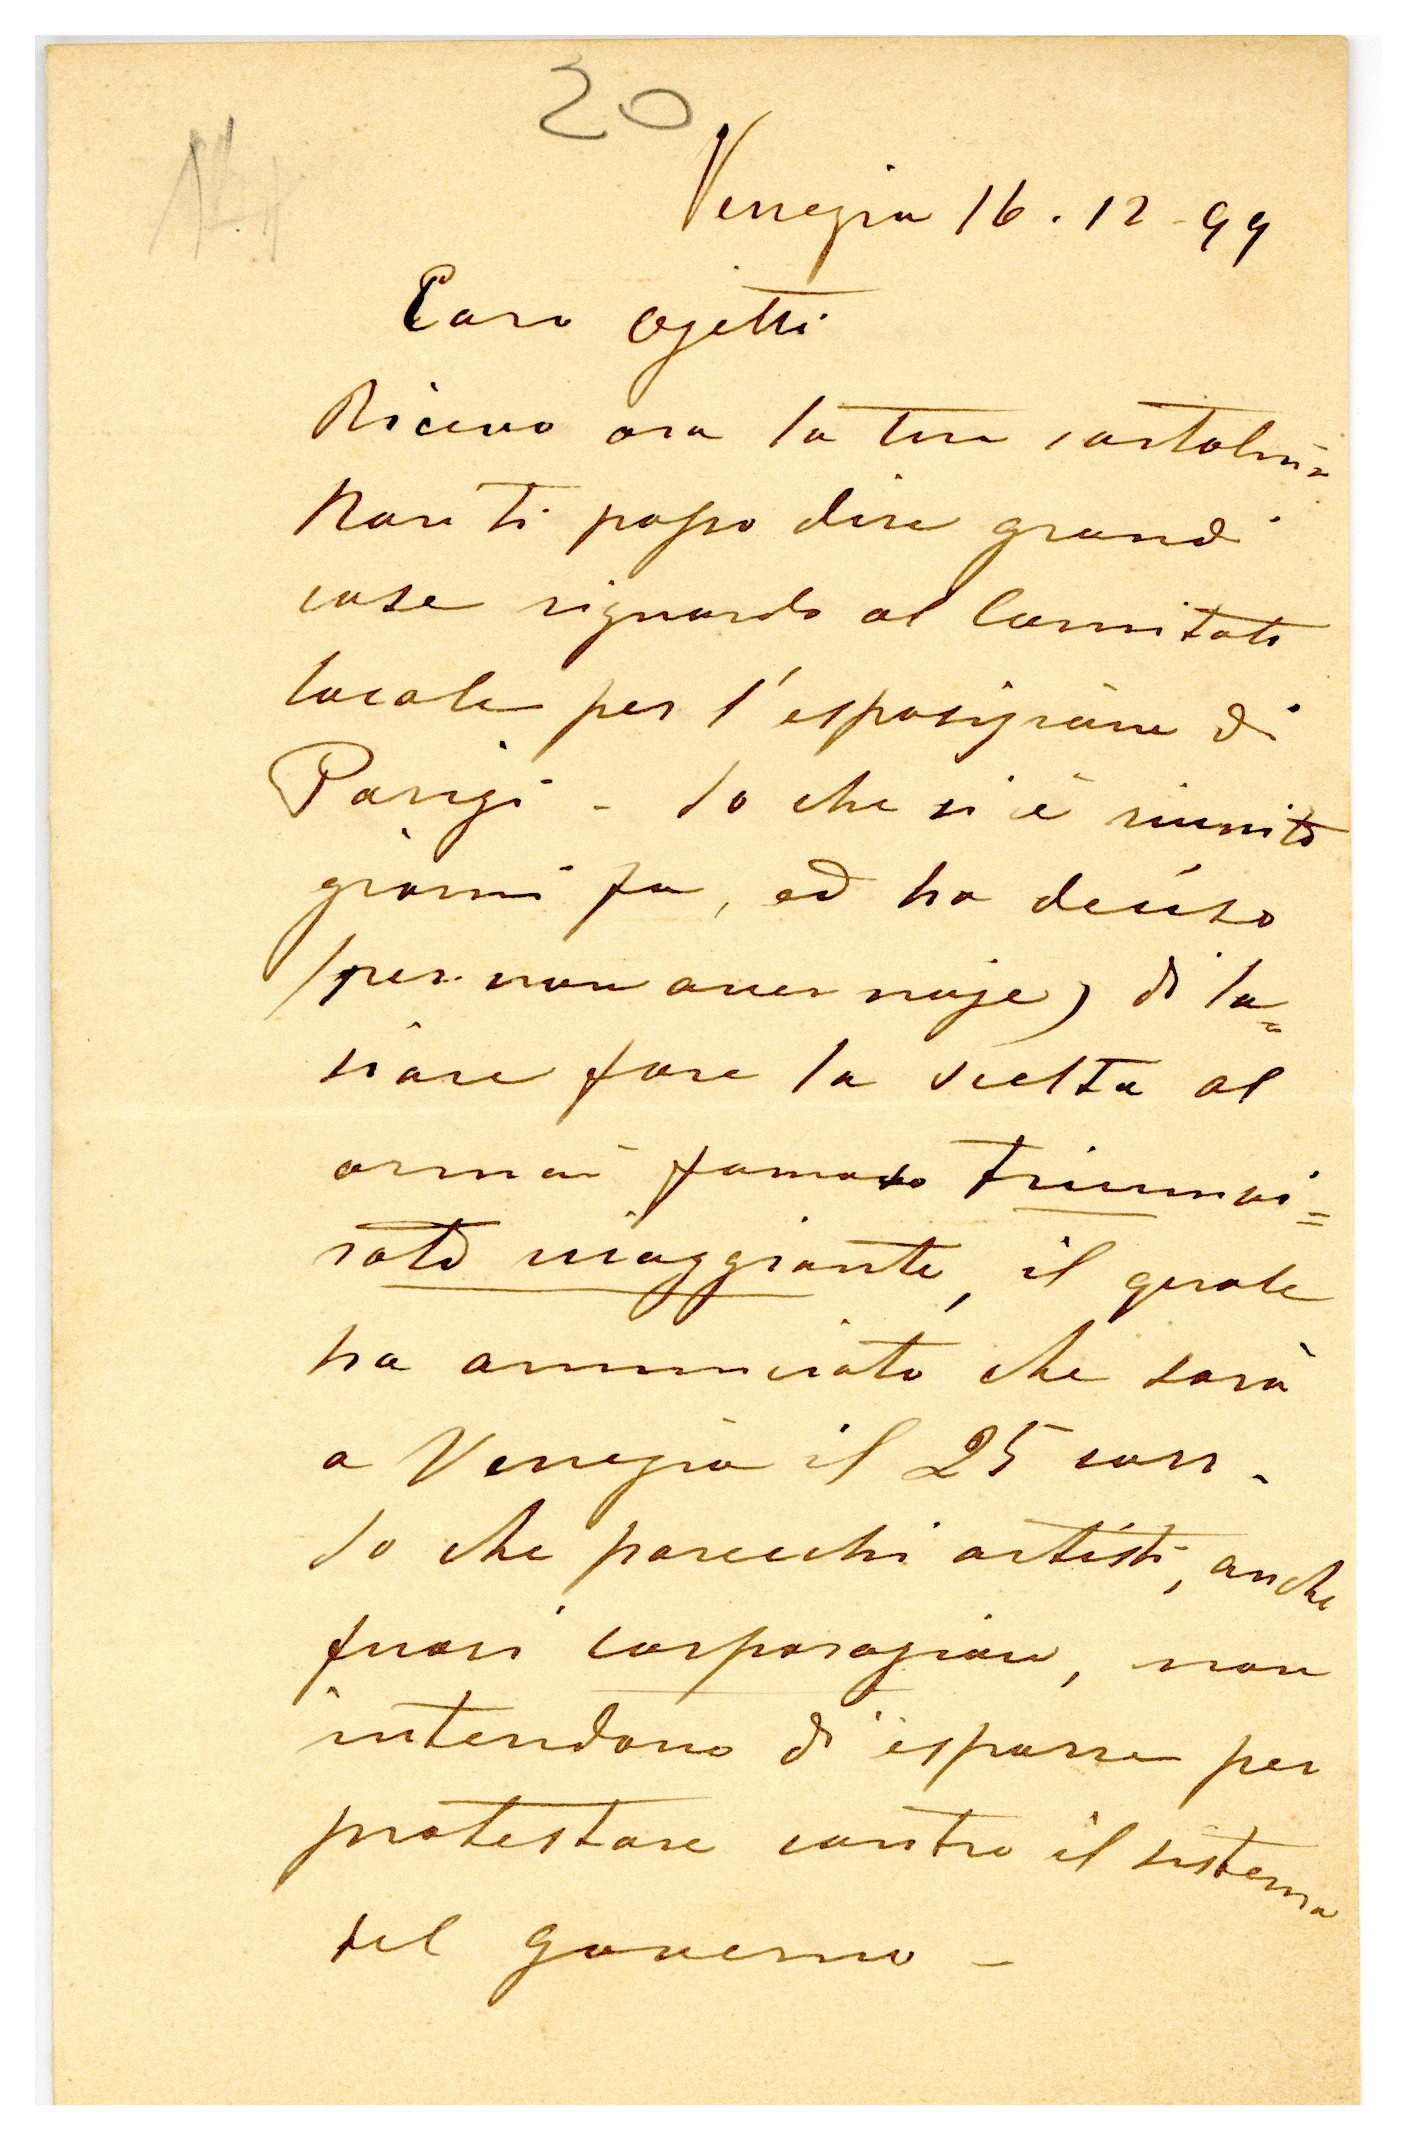 20
Venezia 16.12-99
Caro Ojetti
Ricevo ora la tua cartolina
Non ti posso dire grandi
cose riguardo al Comitato
locale per l'esposizione di
Parigi - So che si è riunito
giorni fa, ed ha deciso
(per non aver noje) di la=
sciare fare la scelta al
ormai famoso triumvi=
rato viaggiante, il quale
ha annunciato che sarà
a Venezia il 25 corr.
So che parecchi artisti, anche
fuori corporazione, non
intendono di esporre per
protestare contro il sistema
del governo -